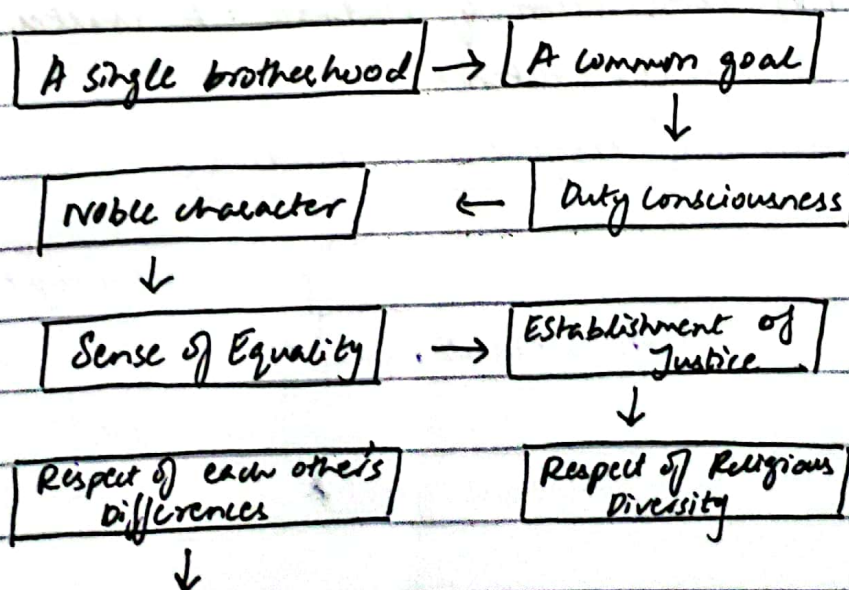 A single brotherhood → A common goal
↓
Noble character ← Duty consciousness
↓
Sense of Equality → Establishment of
Justice
↓
Respect of each other's Respect of Religious
Differences Diversity
↓